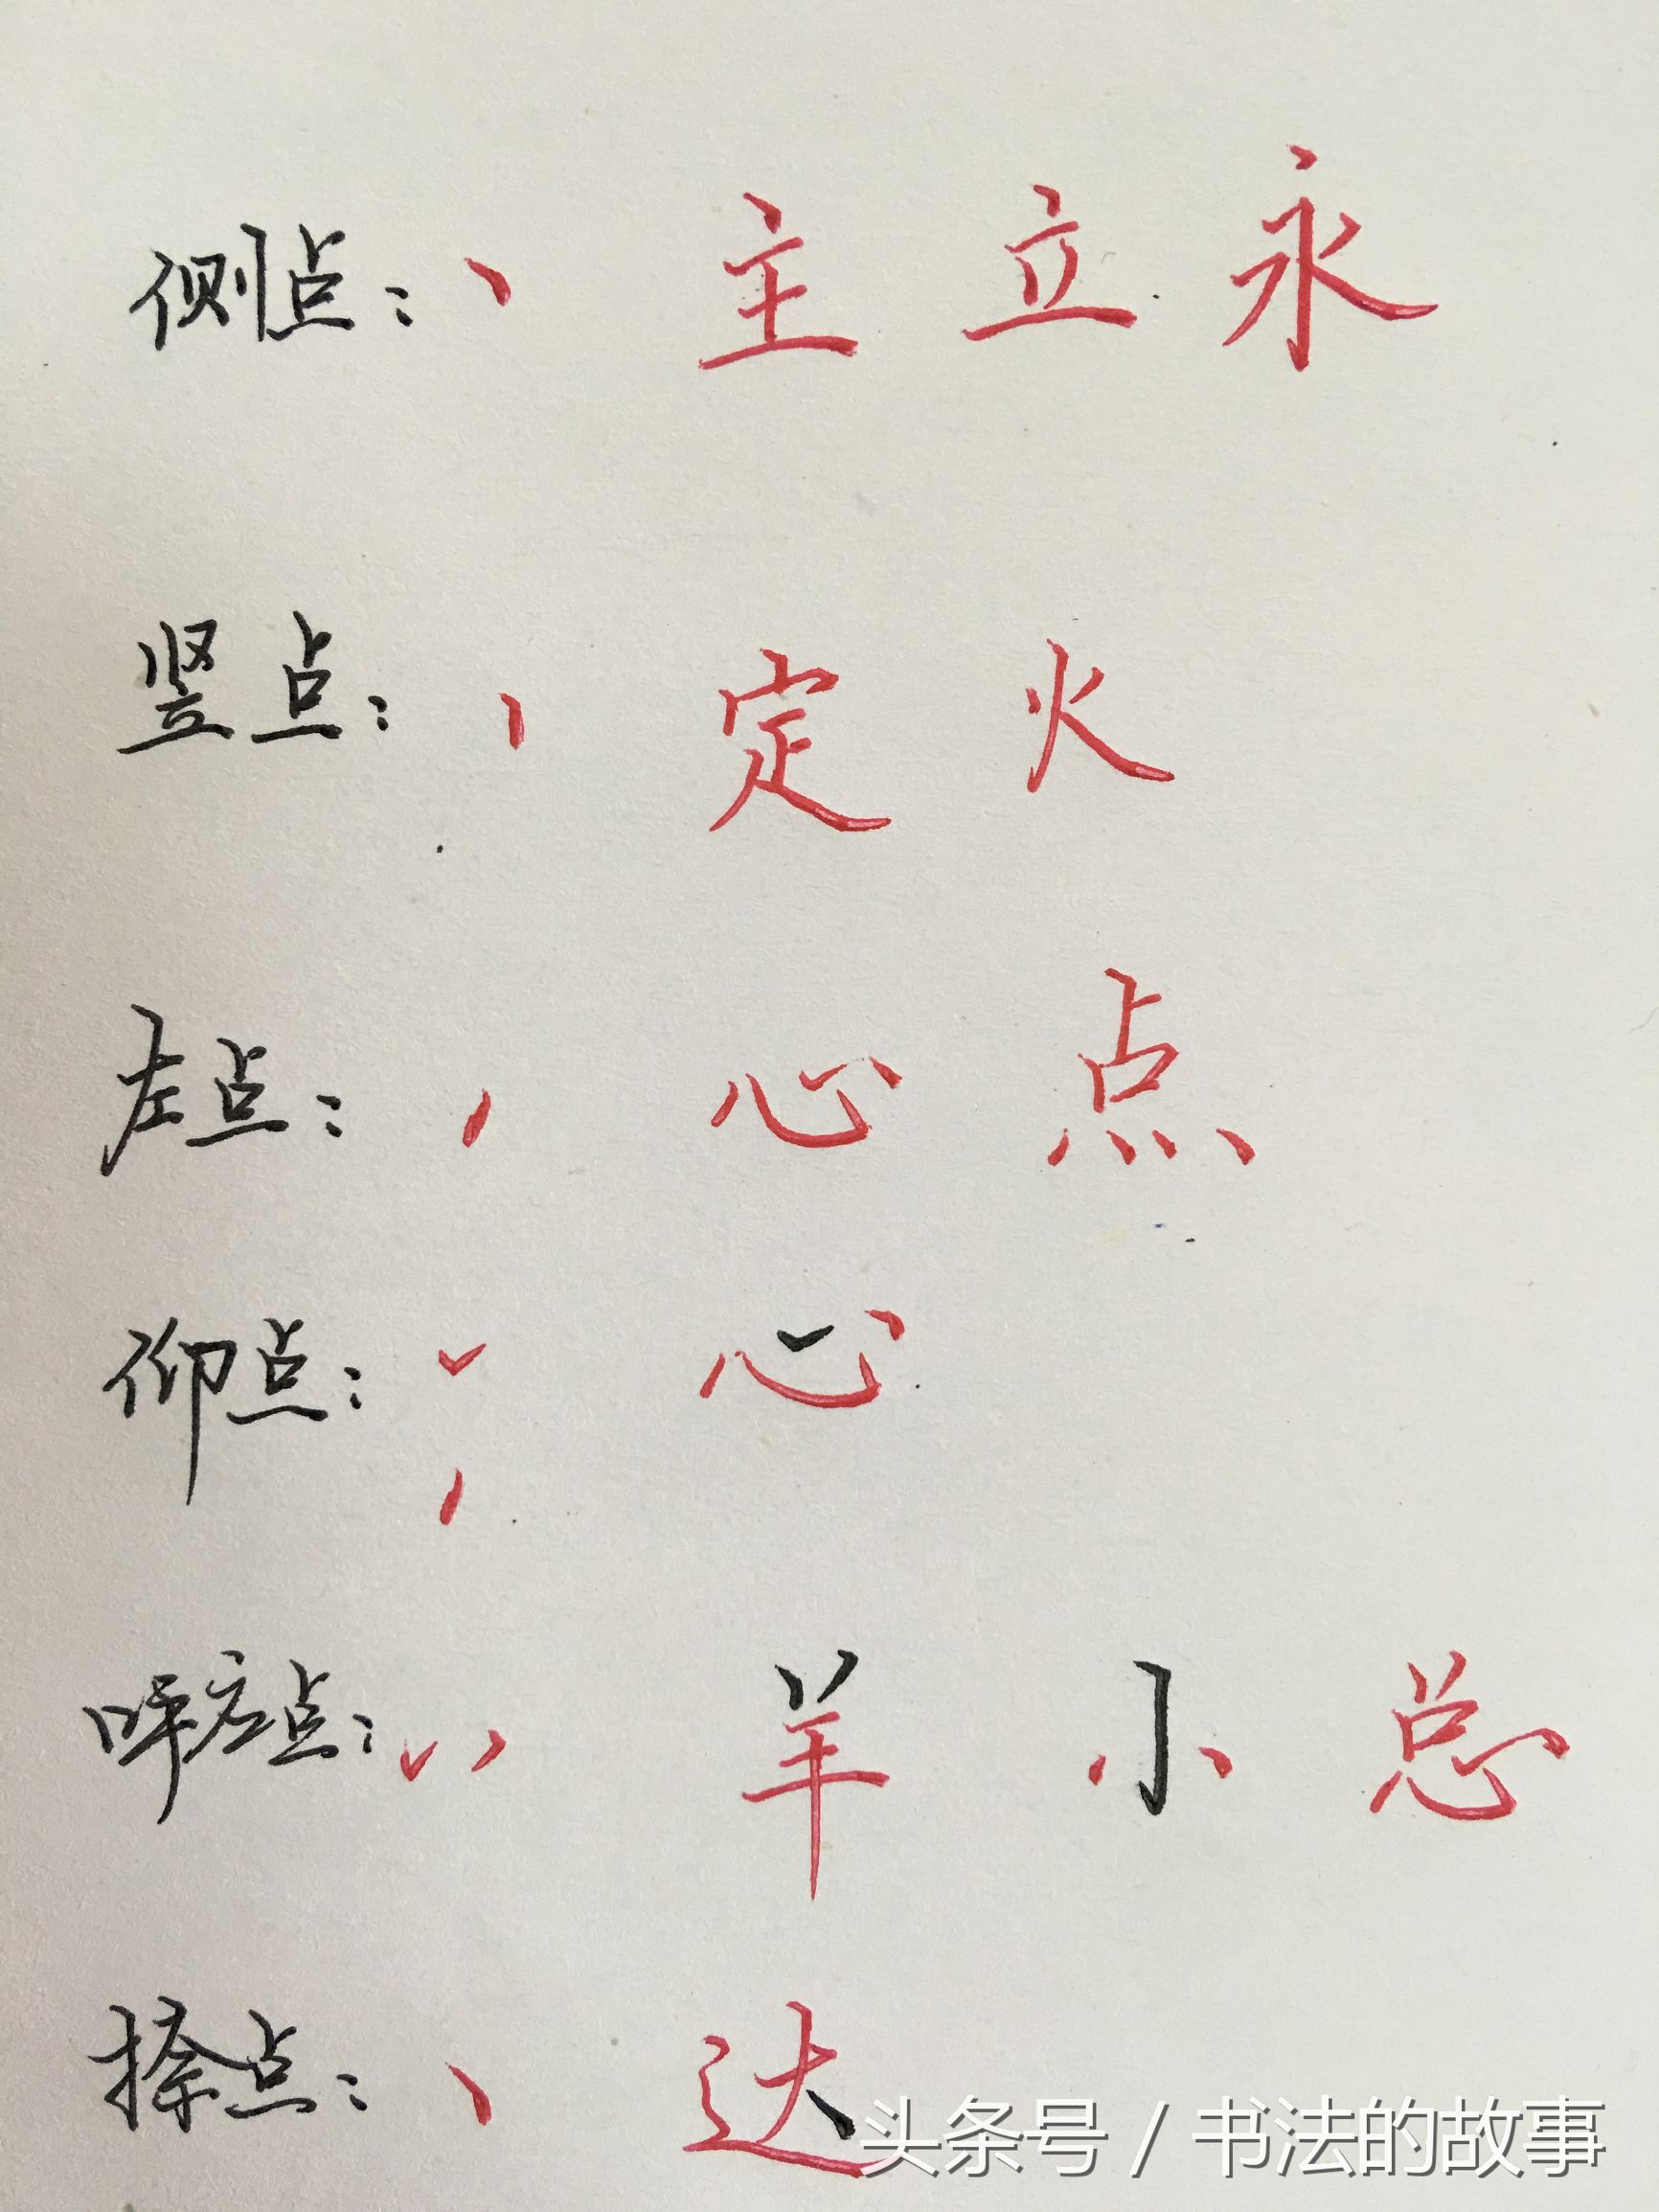 侧点：丶 主 立 永
竖点： 定 火
左点： 心 点
仰点： 心
呼应点： 羊 小 总
捺点：丶 达
头条号 / 书法的故事